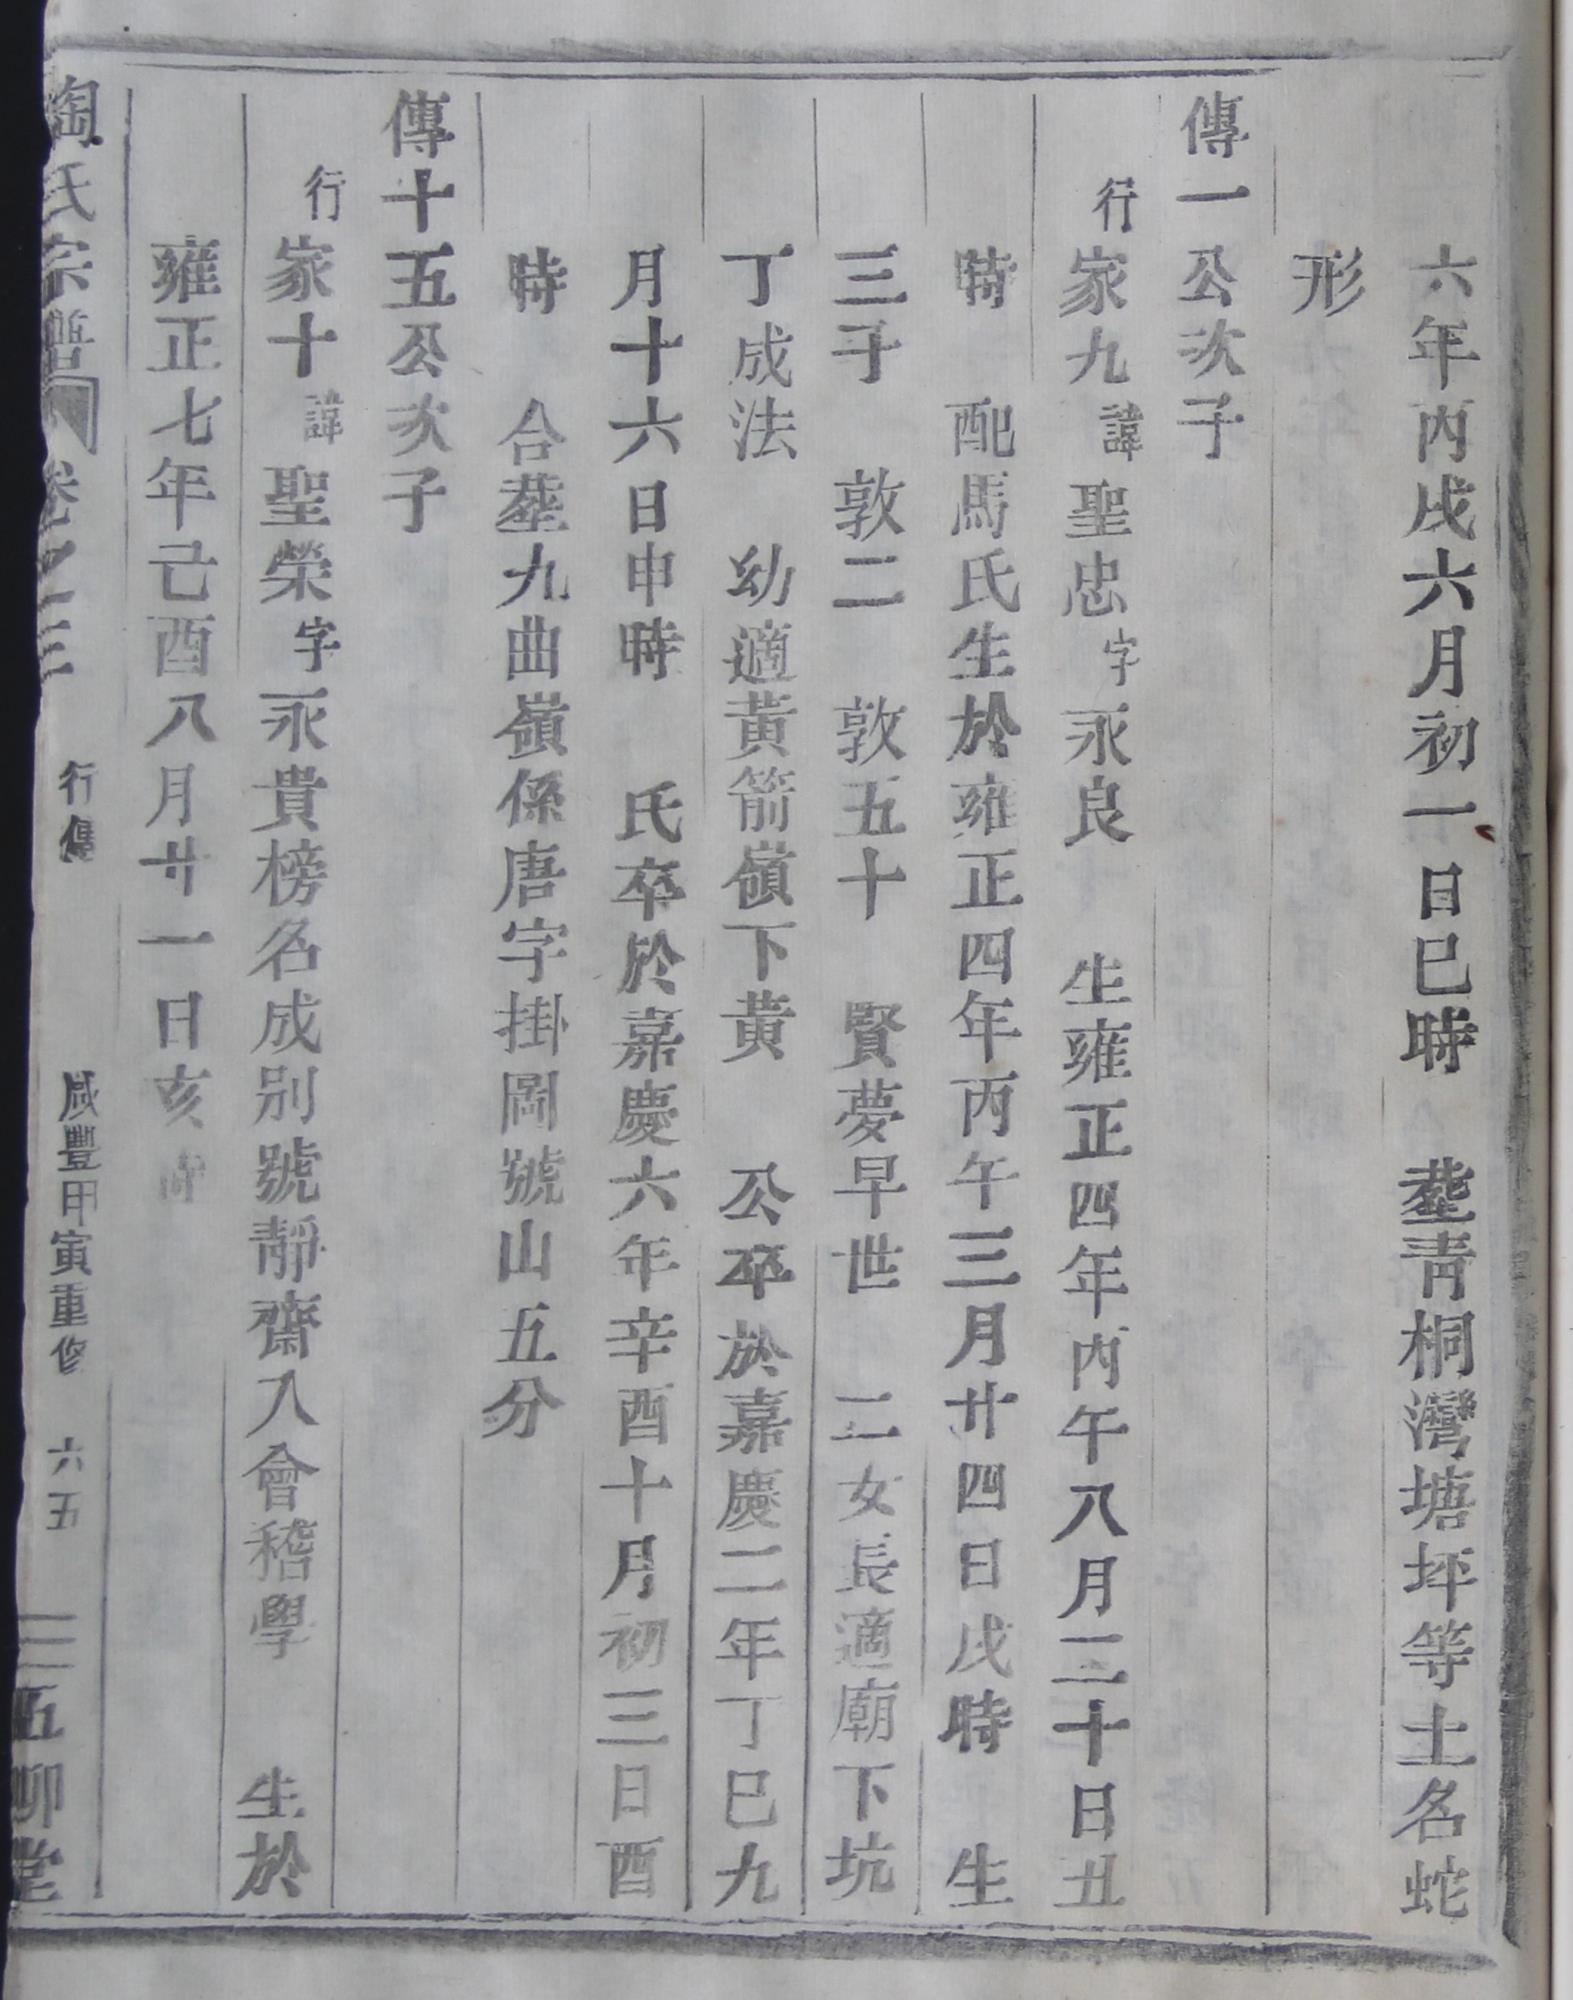 六年丙戌六月初一日巳時　塟靑桐灣塘坪等土名蛇
形
傳一公次子
行家九諱聖忠字永良　生雍正四年丙午八月二十日丑
時　配馬氏生於雍正四年丙午三月廿四日戌時　生
三子　敦二　敦五十　賢夢早世　二女長適廟下坑
丁成法　幼適黃箭嶺下黃　公卒於嘉慶二年丁巳九
月十六日申時　氏卒於嘉慶六年辛酉十月初三日酉
時　合塟九曲嶺係唐字掛圖號山五分
傳十五公次子
行家十諱聖榮字永貴榜名成別號靜齋入會稽學　生於
雍正七年己酉八月廿一日亥時
陶氏宗譜　卷之三　行傳　咸豐甲寅重修　六五　五柳堂